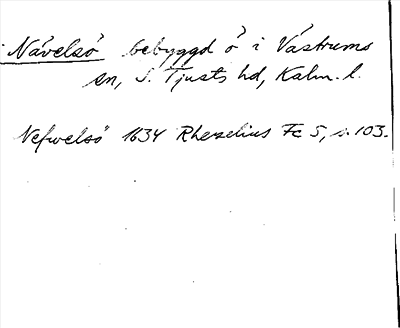 Nävelsö bebyggd ö i Västrums
sn, S. Tjusts hd, Kalm. l.
Nefwelsö 1634 Rhezelius Fc 5, s. 103.